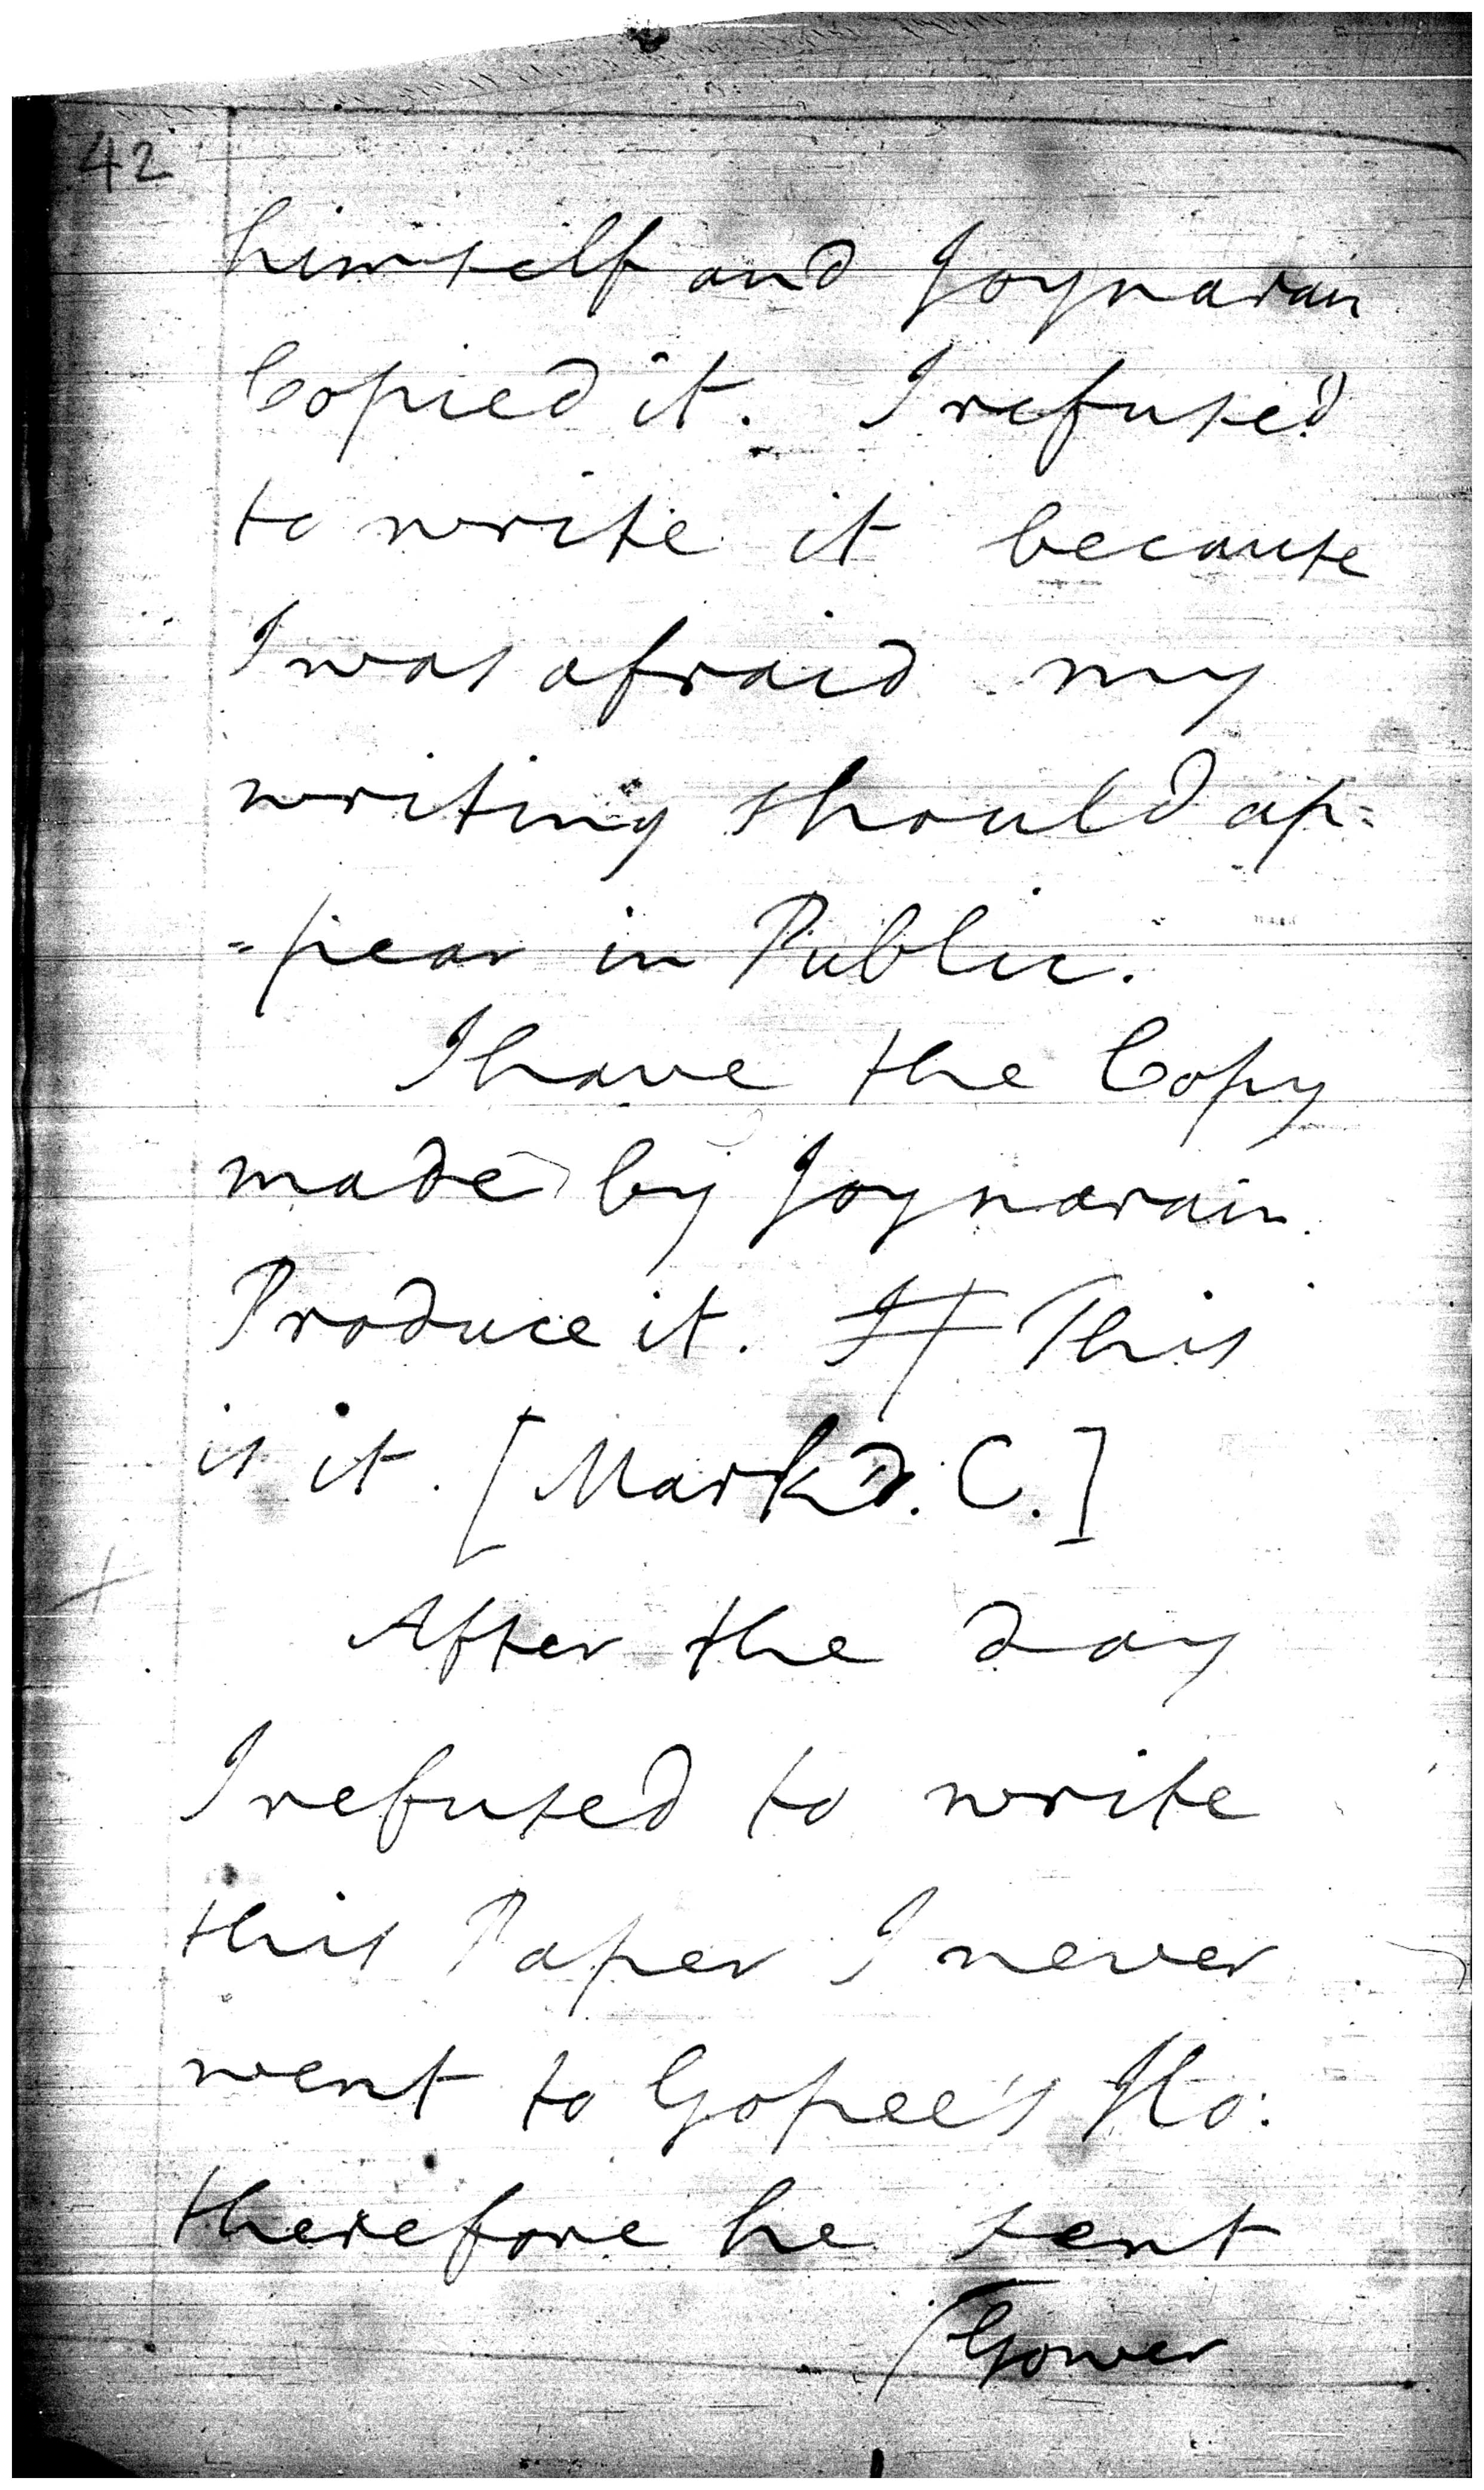 42
himself and Joynarain
Copied it. I refused
to write it because
I was afraid my
writing should ap=
=pear in Public.
I have the Copy
made by Joynarain.
Produce it. # This
is it. [Markd. C.]
After the day
I refused to write
this Paper I never
went to Gopee's Ho:
therefore he sent
Gower